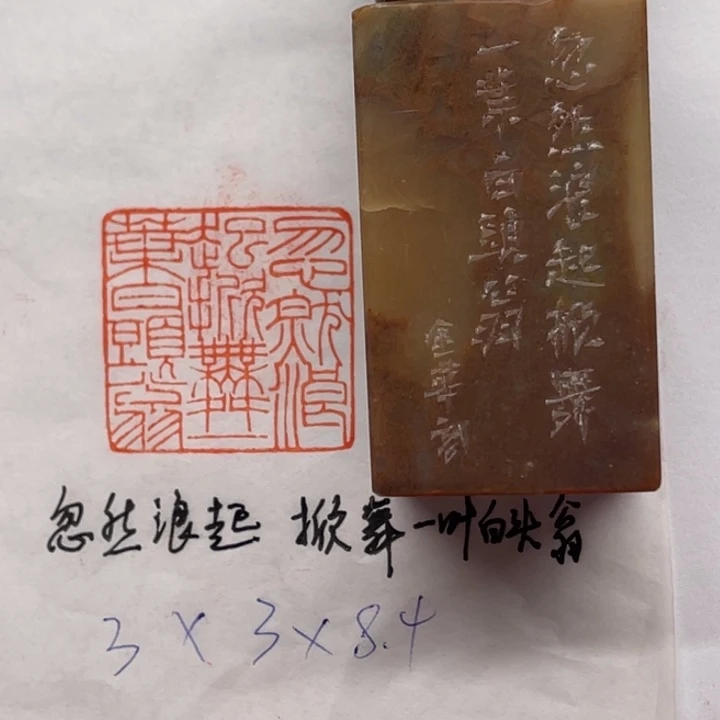 忽然浪
起掀舞一
葉白頭翁
忽然浪起掀舞
一葉白頭翁
金華刻
忽然浪起 掀舞一叶白头翁
3×3×8.4